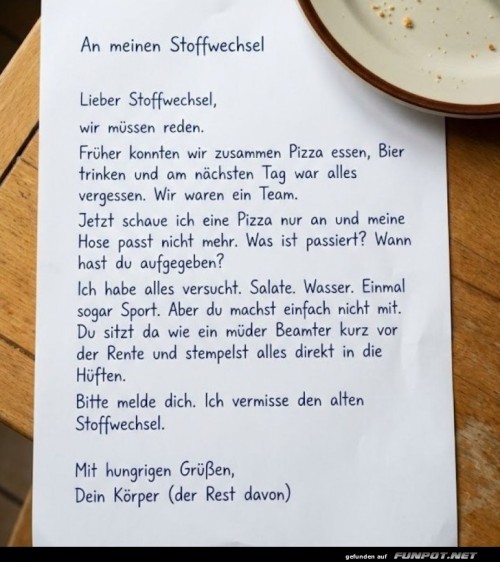 An meinen Stoffwechsel
Lieber Stoffwechsel,
wir müssen reden.
Früher konnten wir zusammen Pizza essen, Bier
trinken und am nächsten Tag war alles
vergessen. Wir waren ein Team.
Jetzt schaue ich eine Pizza nur an und meine
Hose passt nicht mehr. Was ist passiert? Wann
hast du aufgegeben?
Ich habe alles versucht. Salate. Wasser. Einmal
sogar Sport. Aber du machst einfach nicht mit.
Du sitzt da wie ein müder Beamter kurz vor
der Rente und stempelst alles direkt in die
Hüften.
Bitte melde dich. Ich vermisse den alten
Stoffwechsel.
Mit hungrigen Grüßen,
Dein Körper (der Rest davon)
gefunden auf FUNPOT.NET